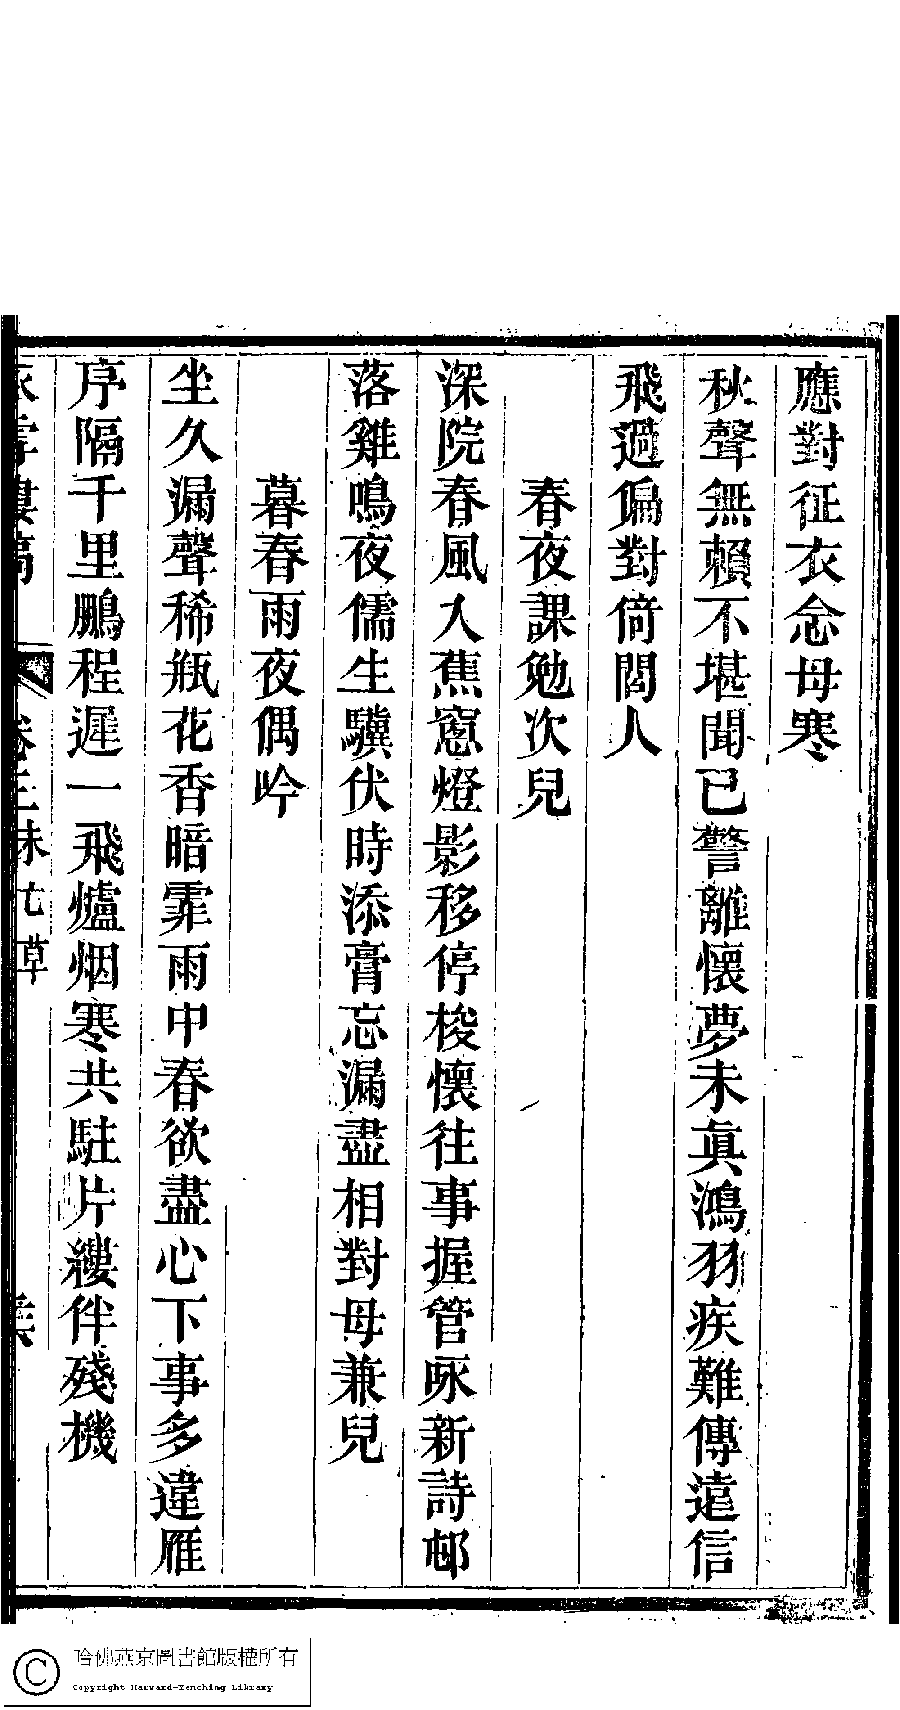 應對征衣念母寒
秋聲無賴不堪聞已警離懷夢未眞鴻羽疾難傳遠信
飛過偏對倚閭人
春夜課勉次兒
深院春風入蕉窻燈影移停梭懷往事握管咏新詩邨
落雞鳴夜儒生驥伏時添膏忘漏盡相對母兼兒
暮春雨夜偶吟
坐久漏聲稀瓶花香暗霏雨中春欲盡心下事多違雁
序隔千里鵬程遲一飛爐烟寒共駐片縷伴殘機
卷三未亡草
哈佛燕京圖書館版權所有
Copyright Harvard-Yenching Library